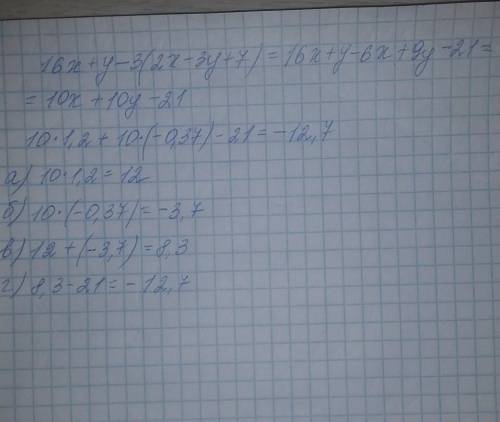 16x+y-3(2x-3y+7)=16x+y-6x+9y-21=
=10x+10y-21
10·1,2+10·(-0,37)-21=-12,7
а) 10·1,2=12
б) 10·(-0,37)=-3,7
в) 12+(-3,7)=8,3
г) 8,3-21=-12,7